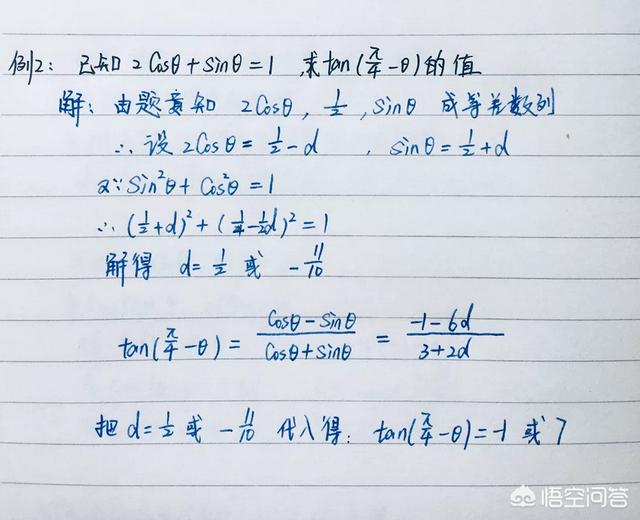 例2: 已知 2Cosθ+Sinθ=1 求tan(π/4-θ)的值
解: 由题意知 2Cosθ, 1/2, Sinθ 成等差数列
∴ 设 2Cosθ=1/2-d , Sinθ=1/2+d
又∵Sin²θ+Cos²θ=1
∴ (1/2+d)²+(1/4-1/2d)²=1
解得 d=1/2 或 -11/10
tan(π/4-θ) = (Cosθ-Sinθ)/(Cosθ+Sinθ) = (-1-6d)/(3+2d)
把 d=1/2 或 -11/10 代入得: tan(π/4-θ)=-1 或 7
悟空问答